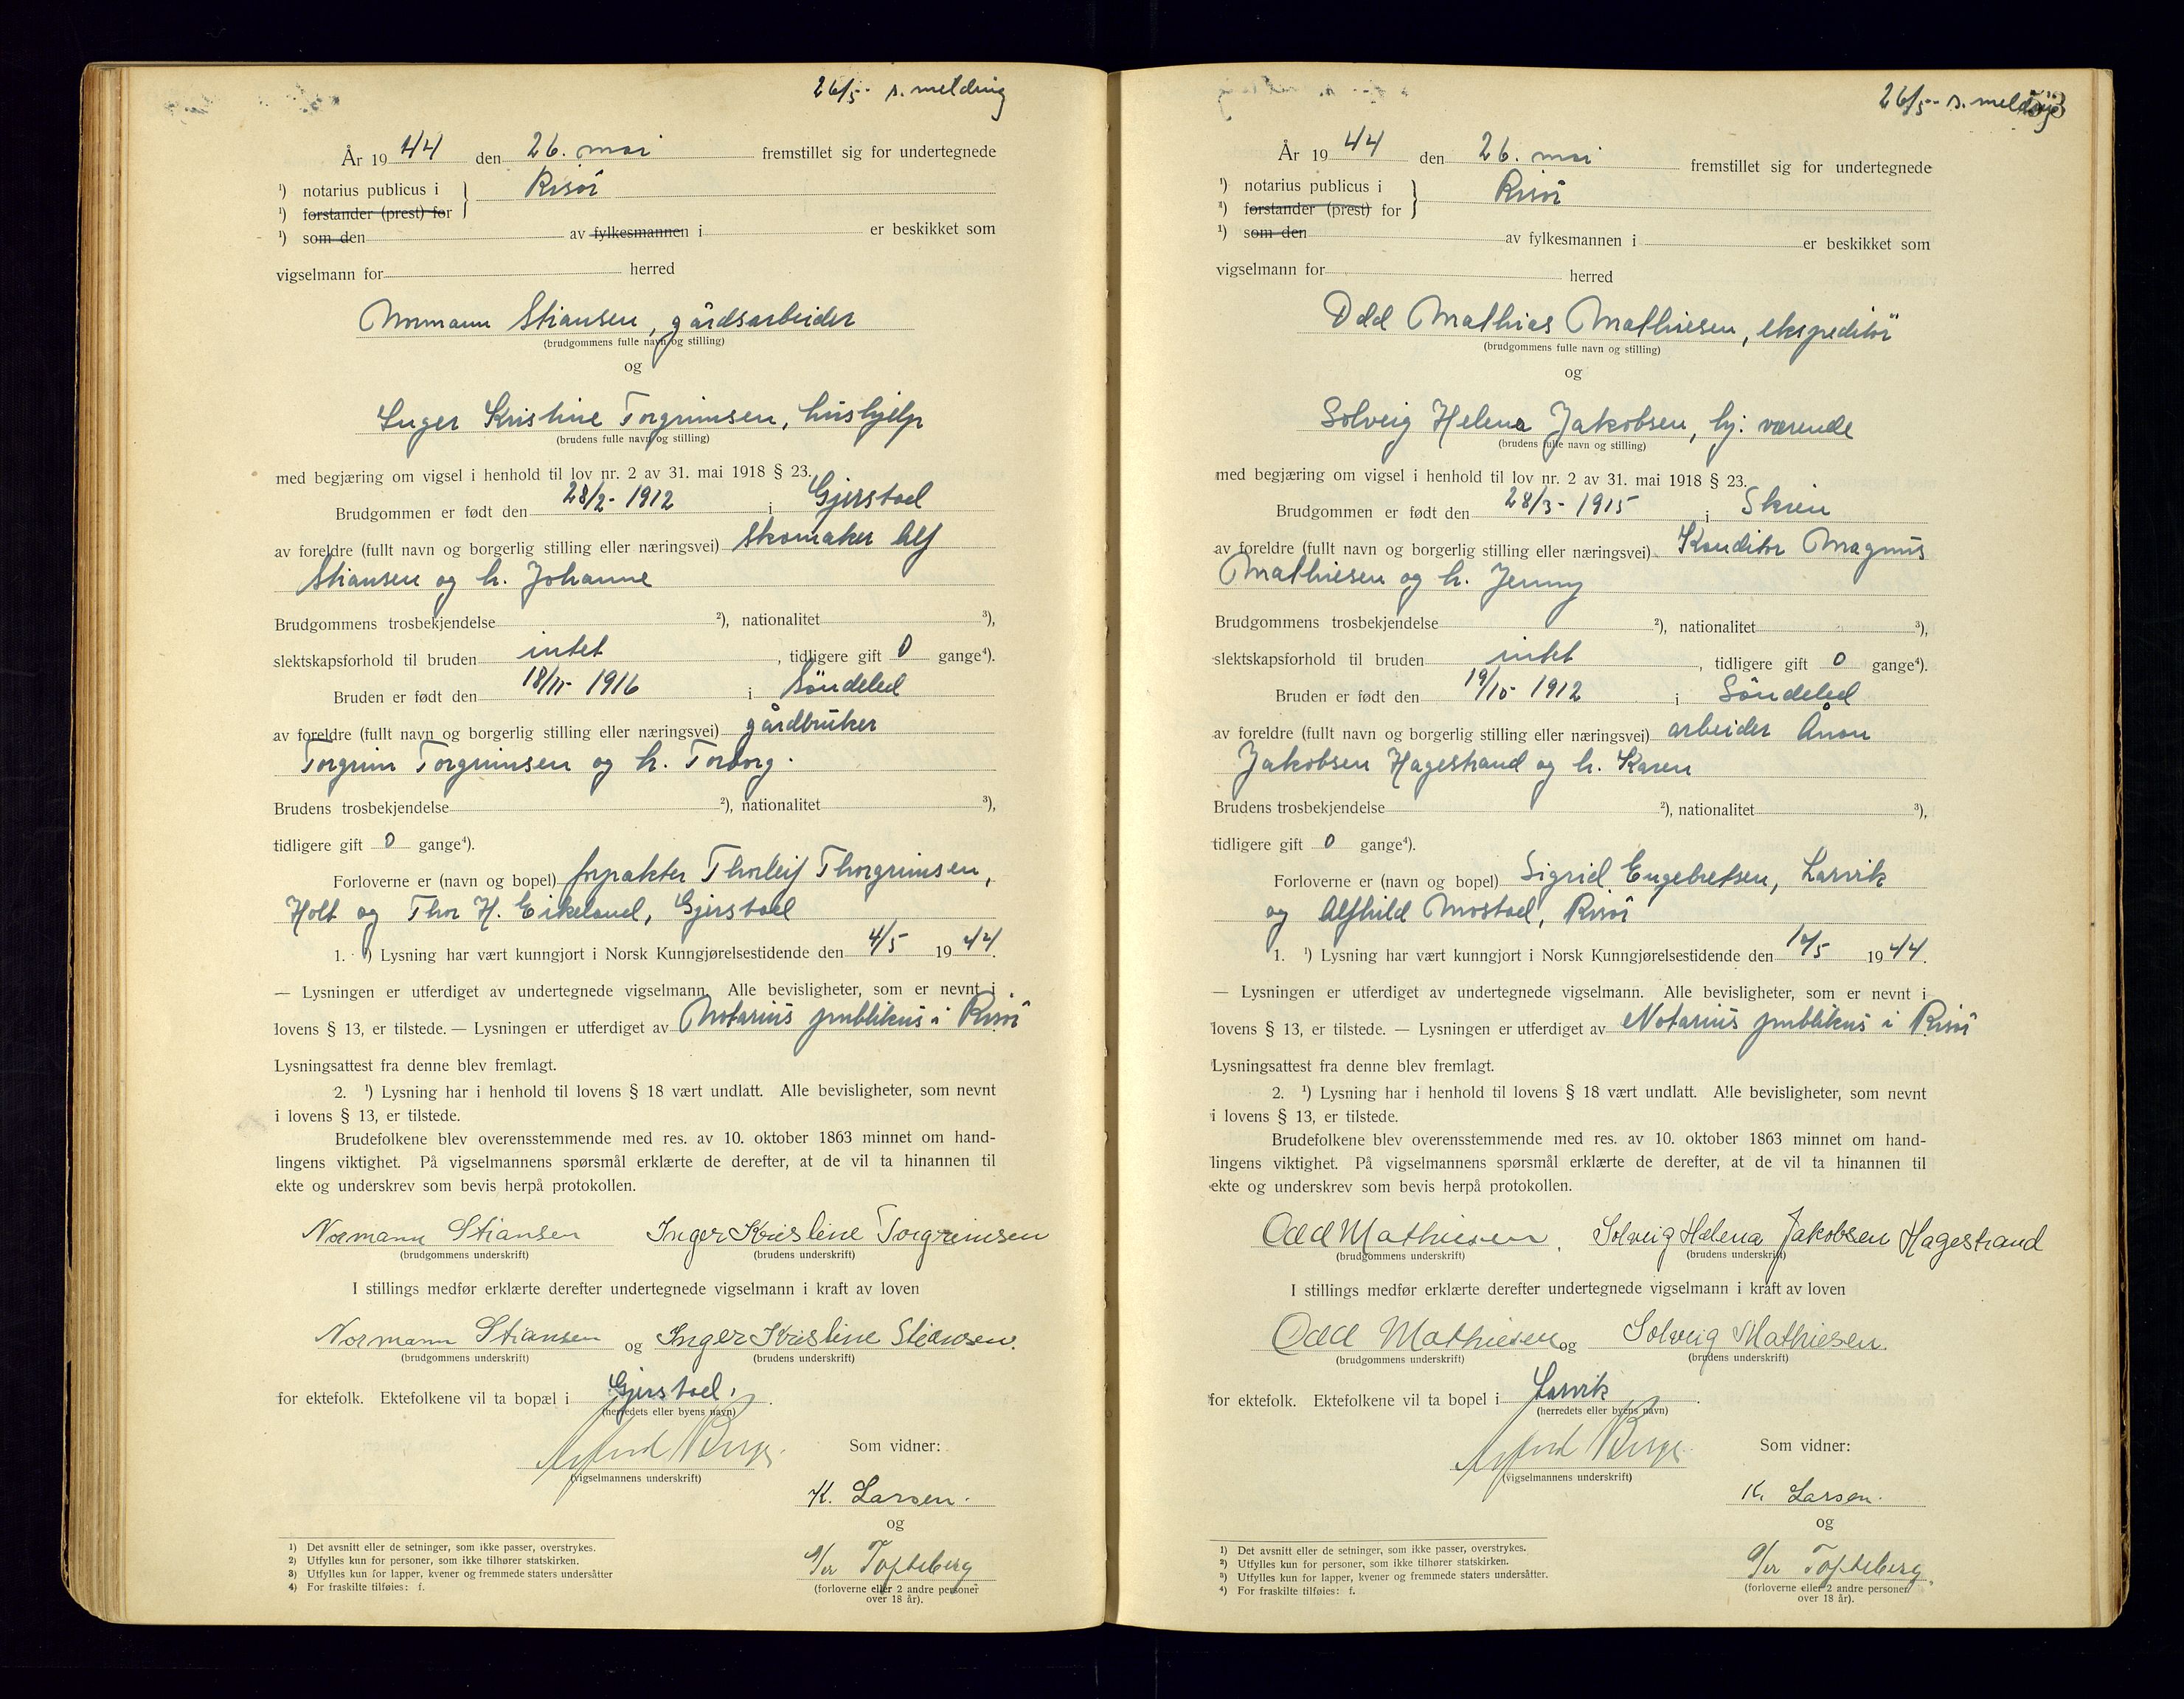 26/5- s. melding
År 1944 den 26. mai fremstillet sig for undertegnede
¹) notarius publicus i } Risör
¹) forstander (prest) for
¹) som den av fylkesmannen i er beskikket som
vigselmann for herred
Normann Stiansen, gårdsarbeider
(brudgommens fulle navn og stilling)
og
Inger Kristine Torgrimsen, hushjelp
(brudens fulle navn og stilling)
med begjæring om vigsel i henhold til lov nr. 2 av 31. mai 1918 § 23.
Brudgommen er født den 28/2- 1912 i Gjerstad
av foreldre (fullt navn og borgerlig stilling eller næringsvei) skomaker Alf
Stiansen og h. Johanne
Brudgommens trosbekjendelse ²), nationalitet ³),
slektskapsforhold til bruden intet, tidligere gift 0 gange⁴).
Bruden er født den 18/11- 1916 i Söndeled
av foreldre (fullt navn og borgerlig stilling eller næringsvei) gårdbruker
Torgrim Torgrimsen og h. Torborg.
Brudens trosbekjendelse ²), nationalitet ³),
tidligere gift 0 gange⁴).
Forloverne er (navn og bopel) forpakter Thorleif Thorgrimsen,
Holt og Thor H. Eikeland, Gjerstad
1. ¹) Lysning har vært kunngjort i Norsk Kunngjørelsestidende den 4/5 1944.
— Lysningen er utferdiget av undertegnede vigselmann. Alle bevisligheter, som er nevnt i
lovens § 13, er tilstede. — Lysningen er utferdiget av Notarius publikus i Risör
Lysningsattest fra denne blev fremlagt.
2. ¹) Lysning har i henhold til lovens § 18 vært undlatt. Alle bevisligheter, som nevnt
i lovens § 13, er tilstede.
Brudefolkene blev overensstemmende med res. av 10. oktober 1863 minnet om hand-
lingens viktighet. På vigselmannens spørsmål erklærte de derefter, at de vil ta hinannen til
ekte og underskrev som bevis herpå protokollen.
Normann Stiansen Inger Kristine Torgrimsen
(brudgommens underskrift) (brudens underskrift)
I stillings medfør erklærte derefter undertegnede vigselmann i kraft av loven
Normann Stiansen og Inger Kristine Stiansen.
(brudgommens underskrift) (brudens underskrift)
for ektefolk. Ektefolkene vil ta bopæl i Gjerstad.
(herredets eller byens navn)
Som vidner:
(vigselmannens underskrift)
K. Larsen.
og
Tofteberg
(forloverne eller 2 andre personer
over 18 år).
1) Det avsnitt eller de setninger, som ikke passer, overstrykes.
2) Utfylles kun for personer, som ikke tilhører statskirken.
3) Utfylles kun for lapper, kvener og fremmede staters undersåtter
4) For fraskilte tilføies: f.
26/5- s. melding
År 1944 den 26. mai fremstillet sig for undertegnede
¹) notarius publicus i } Risör
¹) forstander (prest) for
¹) som den av fylkesmannen i er beskikket som
vigselmann for herred
Odd Mathias Mathiesen, ekspeditör
(brudgommens fulle navn og stilling)
og
Solveig Helena Jakobsen, hj. værende
(brudens fulle navn og stilling)
med begjæring om vigsel i henhold til lov nr. 2 av 31. mai 1918 § 23.
Brudgommen er født den 28/3- 1915 i Skien
av foreldre (fullt navn og borgerlig stilling eller næringsvei) Konditor Magnus
Mathiesen og h. Jenny
Brudgommens trosbekjendelse ²), nationalitet ³),
slektskapsforhold til bruden intet, tidligere gift 0 gange⁴).
Bruden er født den 19/10- 1912 i Söndeled
av foreldre (fullt navn og borgerlig stilling eller næringsvei) arbeider Ånon
Jakobsen Hagestrand og h. Karen
Brudens trosbekjendelse ²), nationalitet ³),
tidligere gift 0 gange⁴).
Forloverne er (navn og bopel) Sigrid Engebretsen, Larvik
og Alfhild Mostad, Risör
1. ¹) Lysning har vært kunngjort i Norsk Kunngjørelsestidende den 10/5 1944.
— Lysningen er utferdiget av undertegnede vigselmann. Alle bevisligheter, som er nevnt i
lovens § 13, er tilstede. — Lysningen er utferdiget av Notarius publikus i Risör
Lysningsattest fra denne blev fremlagt.
2. ¹) Lysning har i henhold til lovens § 18 vært undlatt. Alle bevisligheter, som nevnt
i lovens § 13, er tilstede.
Brudefolkene blev overensstemmende med res. av 10. oktober 1863 minnet om hand-
lingens viktighet. På vigselmannens spørsmål erklærte de derefter, at de vil ta hinannen til
ekte og underskrev som bevis herpå protokollen.
Odd Mathiesen. Solveig Helena Jakobsen Hagestrand
(brudgommens underskrift) (brudens underskrift)
I stillings medfør erklærte derefter undertegnede vigselmann i kraft av loven
Odd Mathiesen og Solveig Mathiesen.
(brudgommens underskrift) (brudens underskrift)
for ektefolk. Ektefolkene vil ta bopel i Larvik.
(herredets eller byens navn)
Som vidner:
(vigselmannens underskrift)
K. Larsen.
og
Tofteberg.
(forloverne eller 2 andre personer
over 18 år).
1) Det avsnitt eller de setninger, som ikke passer, overstrykes.
2) Utfylles kun for personer, som ikke tilhører statskirken.
3) Utfylles kun for lapper, kvener og fremmede staters undersåtter.
4) For fraskilte tilføies: f.